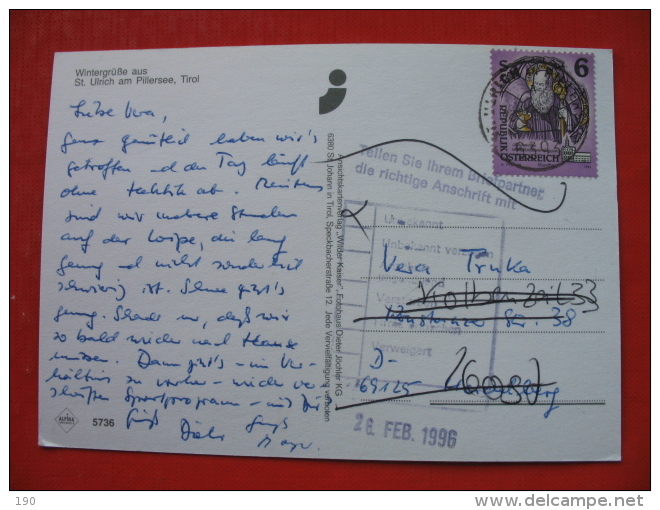 Wintergrüße aus
St. Ulrich am Pillersee, Tirol
Liebe Vera,
ganz gemütlich haben wir's
getroffen und den Tag läuft
ohne Hektik ab. Meistens
sind wir mehrere Stunden
auf der Loipe, die lang
genug und nicht sonderlich
schwierig ist. Schnee gibt's
genug. Schade nur, daß wir
so bald wieder nach Hause
müssen. Dann gibt's – im Ver-
hältnis zu vorher – wieder
Sportprogramm
Gruß
Dieter
5736
Ansichtskartenverlag „Wilder Kaiser", Fotohaus Dieter Jöchler KG
6380 St. Johann in Tirol, Speckbacherstraße 12. Jede Vervielfältigung verboten
6
REPUBLIK
ÖSTERREICH
Teilen Sie Ihrem Briefpartner
die richtige Anschrift mit
Unbekannt
Unbekannt verzogen
Verweigert
Vera Truka
Str. 38
D-
69125 Heidelberg
26. FEB. 1996
190
delcampe.net